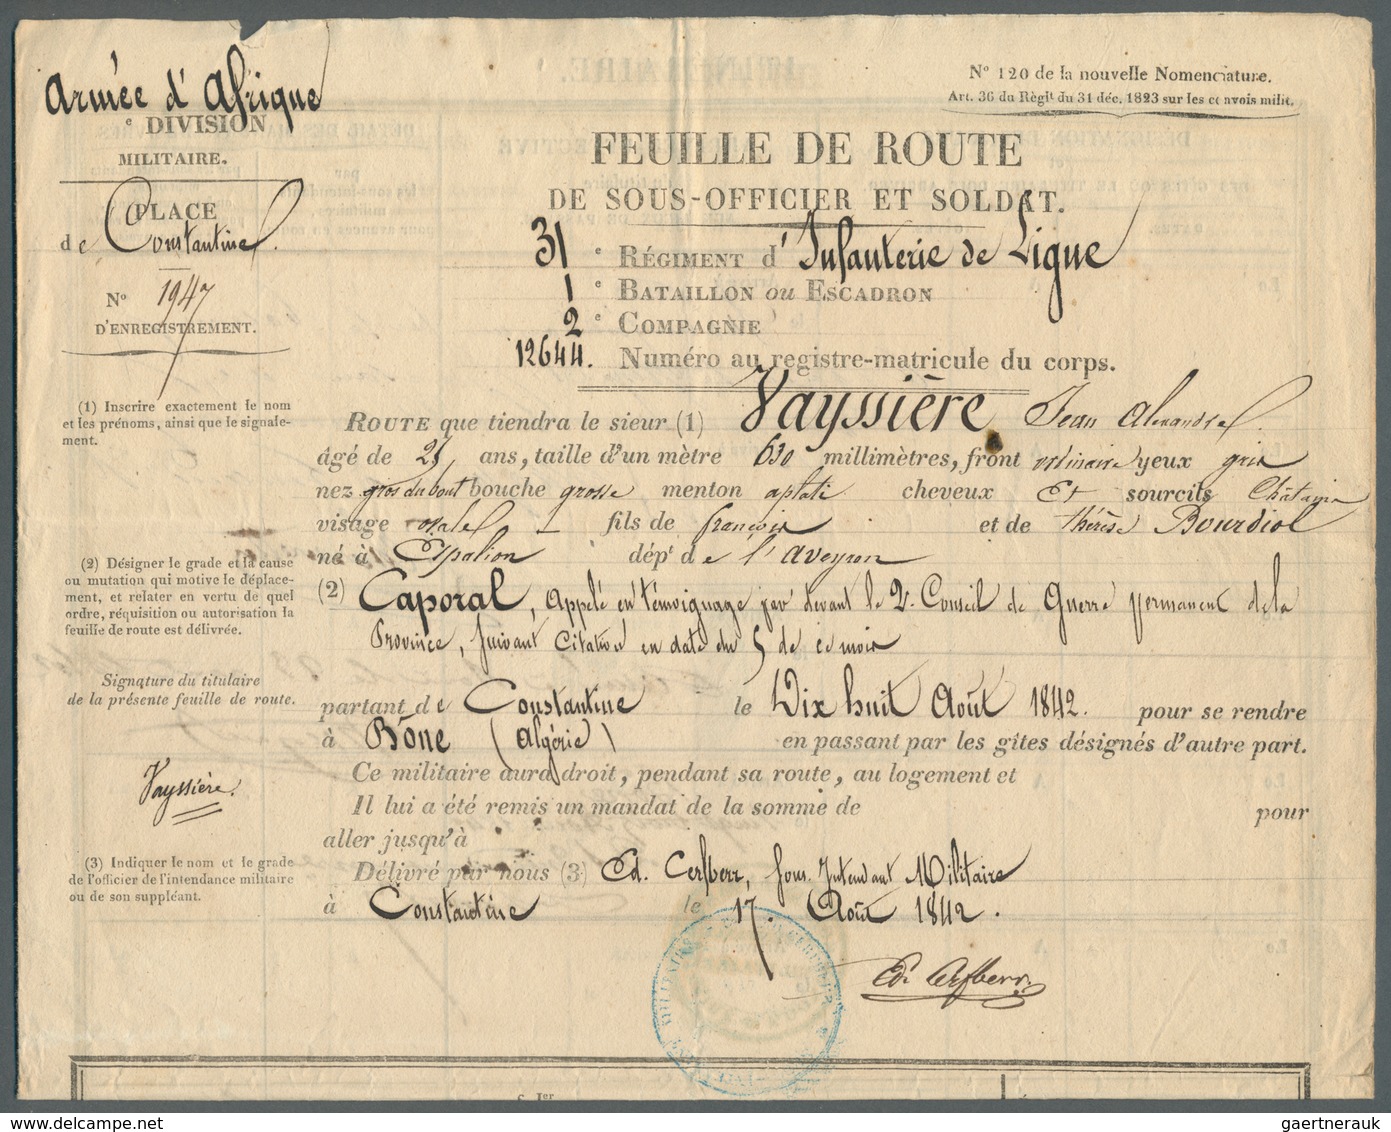 Armée d'Afrique
e DIVISION
MILITAIRE.
PLACE
de Constantine
N° 1947
D'ENREGISTREMENT.
(1) Inscrire exactement le nom
et les prénoms, ainsi que le signale-
ment.
(2) Désigner le grade et la cause
ou mutation qui motive le déplace-
ment, et relater en vertu de quel
ordre, réquisition ou autorisation la
feuille de route est délivrée.
Signature du titulaire
de la présente feuille de route.
Vayssière.
(3) Indiquer le nom et le grade
de l'officier de l'intendance militaire
ou de son suppléant.
N° 120 de la nouvelle Nomenclature.
Art. 36 du Règlt du 31 déc. 1823 sur les convois milit.
FEUILLE DE ROUTE
DE SOUS-OFFICIER ET SOLDAT.
31 e RÉGIMENT d'Infanterie de Ligne
1 e BATAILLON ou ESCADRON
2 e COMPAGNIE
12644. Numéro au registre-matricule du corps.
ROUTE que tiendra le sieur (1) Vayssière Jean Alexandre
âgé de ans, taille d'un mètre 630 millimètres, front ordinaire yeux gris
nez gros du bout bouche grosse menton aplati cheveux et sourcils Châtain
visage ovale fils de françois et de thérèse Bourdiol
né à Espalion dépt de l'aveyron
(2) Caporal, appelé en témoignage par devant le 2e Conseil de Guerre permanent de la
Province, suivant citation en date du 5 de ce mois
partant de Constantine le Dix huit Août 1842. pour se rendre
à Bône (Algérie) en passant par les gîtes désignés d'autre part.
Ce militaire aura droit, pendant sa route, au logement et
Il lui a été remis un mandat de la somme de pour
aller jusqu'à
Délivré par nous (3) Ed. Cerfberr, Sous Intendant Militaire
à Constantine le 17. Août 1842.
Ed. Cerfberr
gaertnerauk